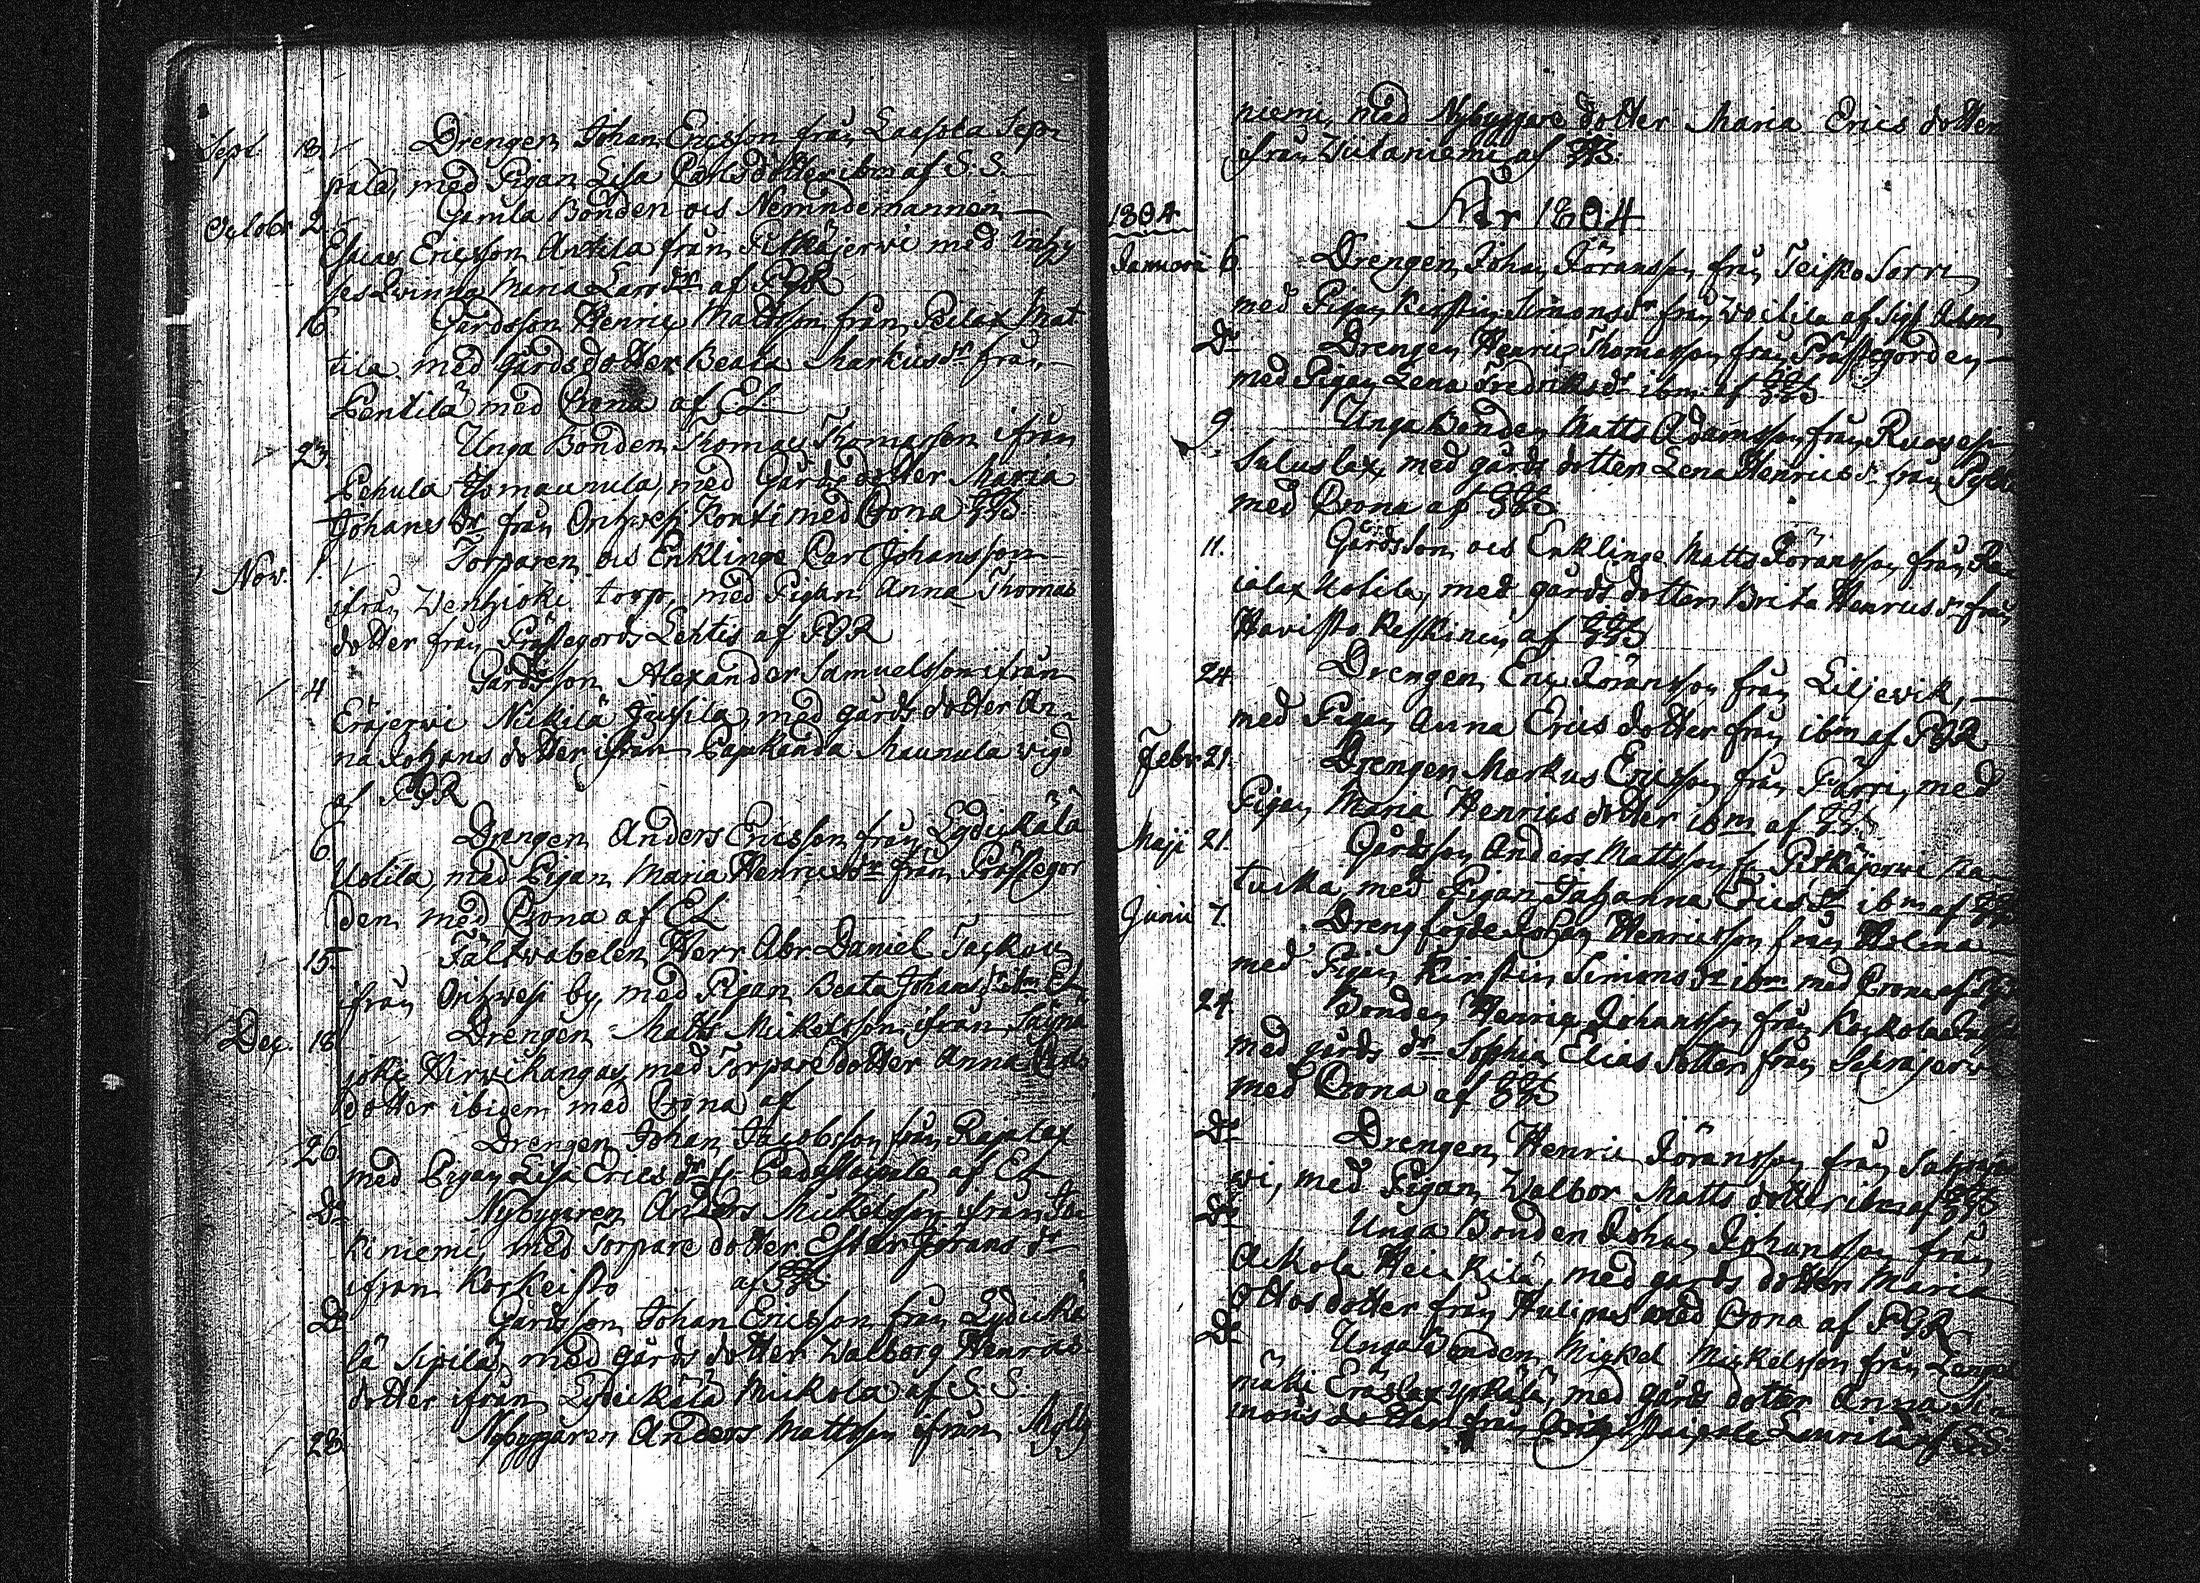 Sept. 18. Drengen Johan Ericsson från Laasola Sep-
pälä, med Pigan Lisa Carlsdotter ibm af S. S.
Octobr 2. Gamla Bonden ocs Nemndemannen
Elias Ericsson Anttila från Pitkäjerwi med
qwinna Maria Larsdr af PGR
16. Gårdsson Henric Mattsson från Pelax Mat
tila med gårdsdotter Beata Marcusdr från
Pentilä med Crona af EL
23. Unga Bonden Thomas Thomasson ifrån
Pehula Homaunula, med Gårdsdotter Maria
Johansdr från Orihwesi Kontti med Crona
Nov. 1. Torparen ocs Enklinge Carl Johansson
ifrån Wenhjoki torp, med Pigan Anna Thomas
dotter från Prästegords Lehtis af PGR
4 Gårdsson Alexander Samuelsson ifrån
Eräjerwi Nickilä Jussila, med gårds dotter An-
na Johans dotter ifrån Pappkanda Maunula wigd
af PGR
6 Drengen Anders Ericsson från Lydickälä
Uotila, med Pigan Maria Henricsdr från Prästegor
den med Crona af EL
15. Fältwäbelen Herr Abr. Daniel
ifrån Orihwesi by med Pigan Beata Johansdr ibm EL
Dec. 18 Drengen Matts Mickelsson ifrån Säynä
joki Hirwikangas, med Torpare dotter Anna
dotter ibidem med Crona af
26 Drengen Johan Jacobsson från Rajalax
med Pigan Lisa Erics dr fr af EL
Do Nybygaren Anders Mickelsson ifrån
kiniemi, med Torpare dotter Ester Jörans dr
ifrån Korkeisto af
Do Gårdsson Johan Ericsson från Lydickä
lä Sipilä, med gårds dotter Walborg Henrics
dotter ifrån Lydickälä Mickola af S. S.
28 Nybyggaren Anders Mattsson ifrån Mylly
niemi, med Nybyggare dotter Maria Erics dotter
ifrån Wiitaniemi af
1804. År 1804
Januarii 6. Drengen Johan Göransson från Teisko Sarri
med Pigan Kirstin Simonsdr från Woitila af
Do Drengen Henric Thomasson från Prästegorden
med Pigan Lena Fredriksdr ibm af
9 Unga Bonden Matts Adamsson från Ruowesi
Saluslax, med gårds dotter Lena Henricsdr från
med Crona af
11. Gårdsson ocs Enklinge Matts Göransson från Ra
ialax Uotila, med gårds dotter Brita Henricsdr från
Hawisto Keskinen af
24 Drengen Eric Göransson från Liljewik,
med Pigan Anna Erics dotter från ibm af PGR
Febr. 21. Drengen Markus Ericsson från Pärri, med
Pigan Maria Henrics dotter ibm af
Maji 21 Gårdsson Anders Mattsson fr Pitkäjerwi
tuska, med Pigan Johanna Ericsdr ibm af
Junii 7. Drengfogde Johan Henricsson från Holma
med Pigan Kirstin Simonsdr ibm med Crona af
24. Bonden Henric Johansson från Koskola
med gårds dr Sophia Elias dotter från
med Crona af
Do Drengen Henric Göransson från
wi, med Pigan Walbor Matts dotter ibm af
Do Unga Bonden Johan Johansson från
Ackola Heickilä, med gårds dotter Maria
Ottos dotter från med Crona af PGR
Do Unga Bonden Mickel Mickelsson från
mäki Eräslax Yrkälä, med gårds dotter Anna Si-
mons dotter från Laurila af S.S.